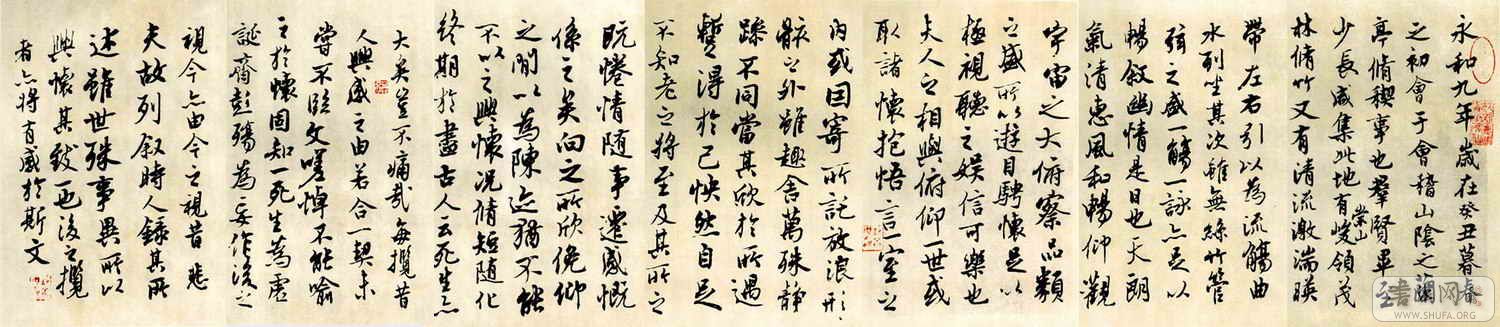 永和九年歲在癸丑暮春
之初會于會稽山陰之蘭
亭脩稧事也羣賢畢
少長咸集此地有崇山峻領茂
林脩竹又有清流激湍暎
帶左右引以為流觴曲
水列坐其次雖無絲竹管
弦之盛一觴一詠亦足以
暢叙幽情是日也天朗
氣清惠風和暢仰觀
宇宙之大俯察品類
之盛所以遊目騁懷足以
極視聽之娛信可樂也
夫人之相與俯仰一世或
取諸懷抱悟言一室之
內或因寄所託放浪形
骸之外雖趣舍萬殊靜
躁不同當其欣於所遇
暫得於己怏然自足
不知老之將至及其所之
既惓情隨事遷感慨
係之矣向之所欣俛仰
之閒以為陳迹猶不能
不以之興懷況脩短隨化
終期於盡古人云死生亦
大矣豈不痛哉每攬昔
人興感之由若合一契未
嘗不臨文嗟悼不能喻
之於懷固知一死生為虛
誕齊彭殤為妄作後之
視今亦由今之視昔悲
夫故列叙時人錄其所
述雖世殊事異所以
興懷其致一也後之攬
者亦將有感於斯文
WWW.SHUFA.ORG